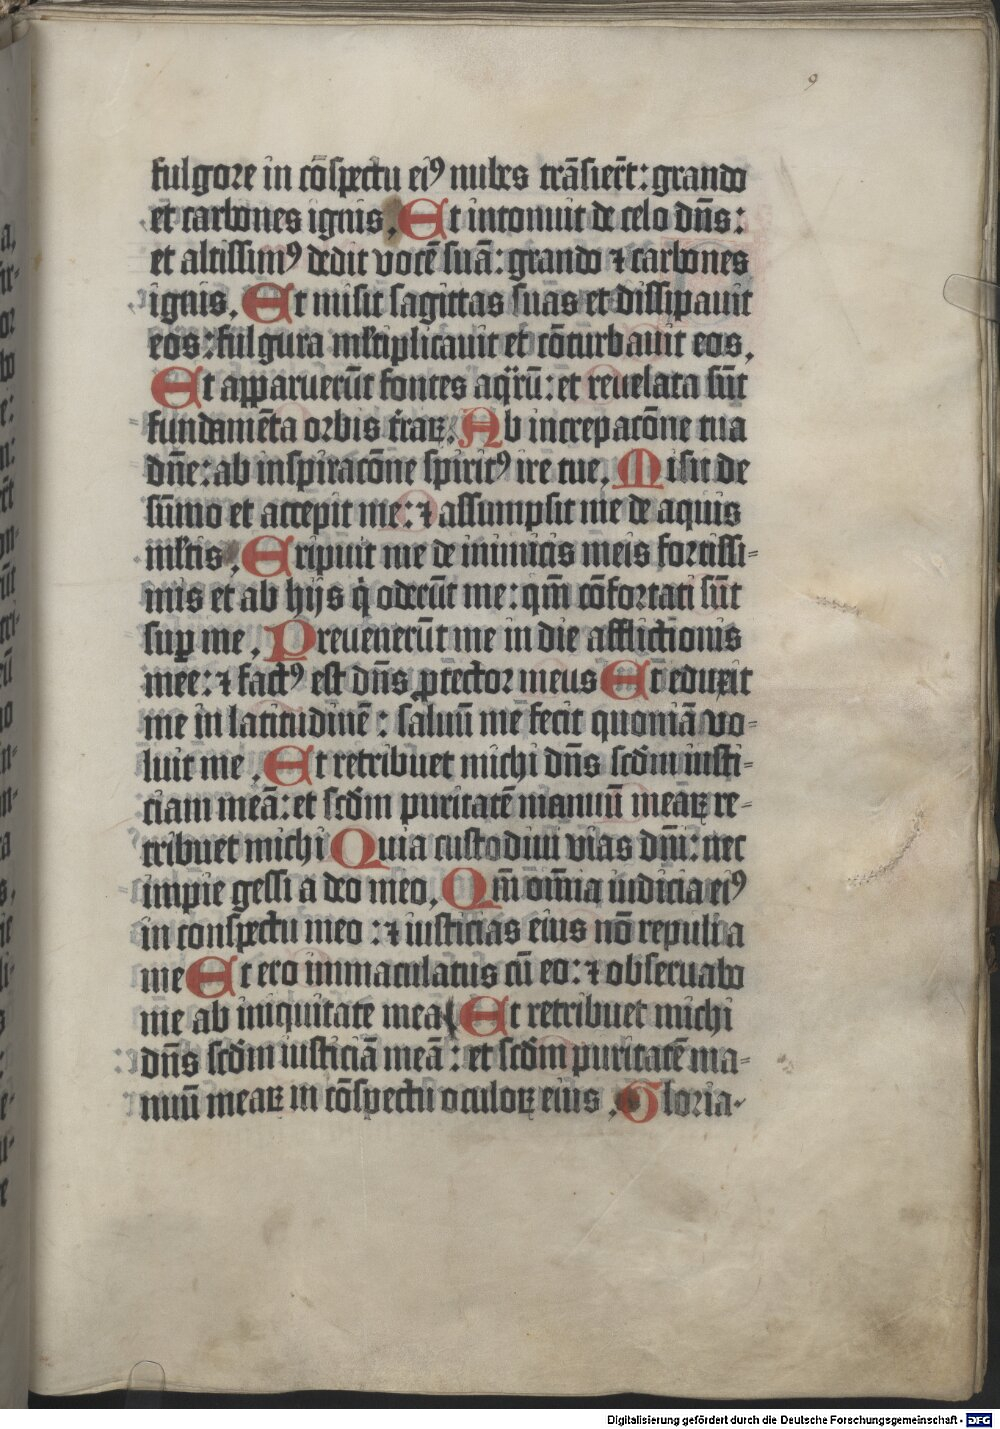 9
fulgore in cōſpectu eiꝰ nubes trāſierūt: grando
et carbones ignis. Et intonuit de celo dn̄s:
et altiſſimꝰ dedit vocē ſuā: grando ⁊ carbones
ignis. Et miſit ſagittas ſuas et diſſipauit
eos: fulgura ml̓tiplicauit et cōturbauit eos.
Et apparuerūt fontes aqͣrū: et reuelata ſūt
fundamēta orbis t̓raꝝ. Ab increpacōne tua
dn̄e: ab inſpiracōne ſpiritꝰ ire tue. Miſit de
ſūmo et accepit me: ⁊ aſſumpſit me de aquis
ml̓tis. Eripuit me de inimicis meis fortiſſi-
mis et ab hijs qͥ oderūt me: qm̄ cōfortati ſūt
ſuꝑ me. Preuenerūt me in die afflictionis
mee: ⁊ factꝰ eſt dn̄s ꝓtector meus Et eduxit
me in latitudinē: ſaluū me fecit quoniā vo-
luit me. Et retribuet michi dn̄s ſcd̄m iuſti-
ciam meā: et ſcd̄m puritatē manuū meaꝝ re-
tribuet michi Quia cuſtodiui vias dn̄i: nec
impie geſſi a deo meo. Qm̄ om̄nia iudicia eiꝰ
in conſpectu meo: ⁊ iuſticias eius nō repuli a
me Et ero immaculatus cū eo: ⁊ obſeruabo
me ab iniquitate mea Et retribuet michi
dn̄s ſcd̄m iuſticiā meā: et ſcd̄m puritatē ma-
nuū meaꝝ in cōſpectu oculoꝝ eius. Gloria.
Digitalisierung gefördert durch die Deutsche Forschungsgemeinschaft - DFG